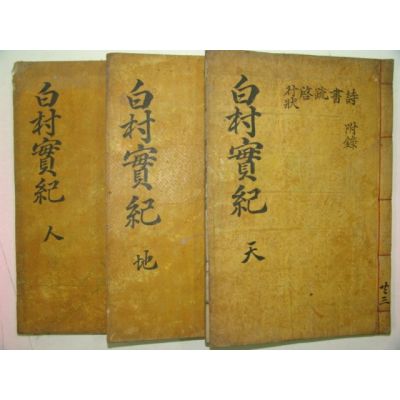 白村實紀 天
詩書疏啓行狀
附錄
共三
白村實紀 地
白村實紀 人